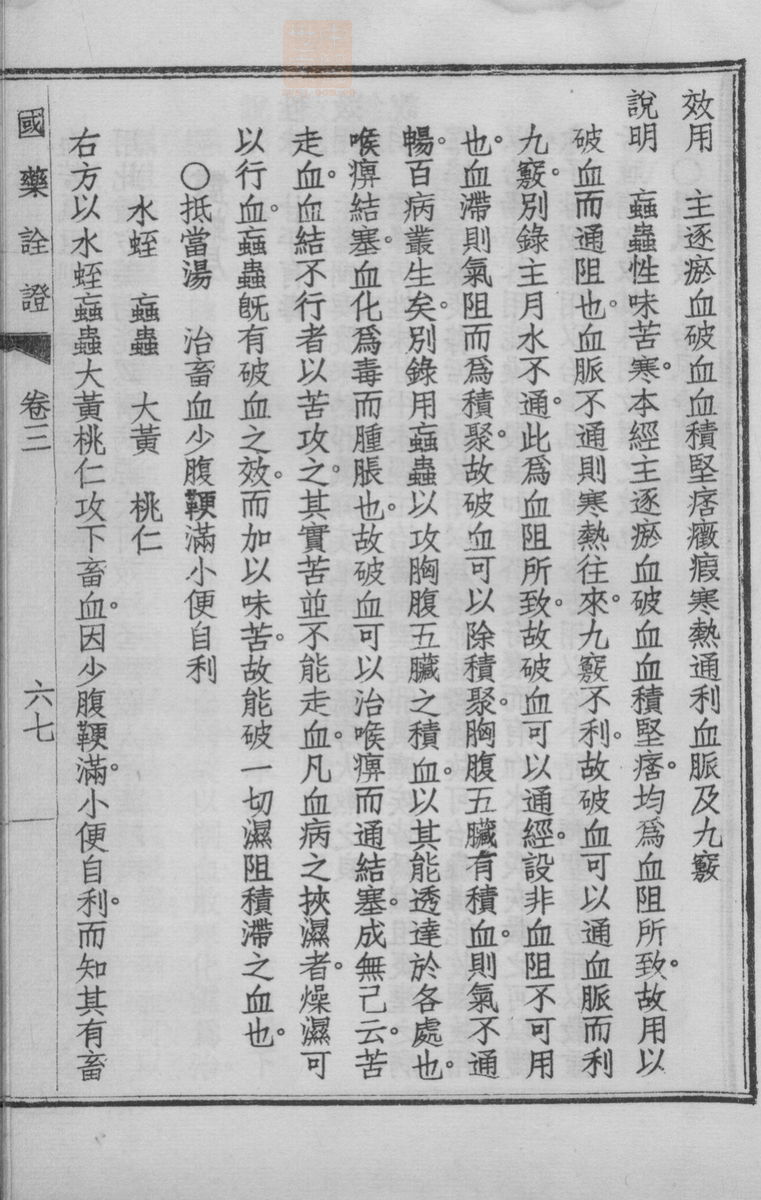 效用　主逐瘀血破血血積堅痞癥瘕寒熱通利血脈及九竅
說明　蝱蟲性味苦寒。本經主逐瘀血破血血積堅痞。均爲血阻所致。故用以
破血而通阻也。血脈不通則寒熱往來。九竅不利。故破血可以通血脈而利
九竅。別錄主月水不通。此爲血阻所致。故破血可以通經。設非血阻不可用
也。血滯則氣阻而爲積聚。故破血可以除積聚。胸腹五臟有積血。則氣不通
暢。百病叢生矣。別錄用蝱蟲以攻胸腹五臟之積血。以其能透達於各處也。
喉痹結塞。血化爲毒而腫脹也。故破血可以治喉痹而通結塞。成無己云。苦
走血。血結不行者以苦攻之。其實苦並不能走血。凡血病之挾濕者。燥濕可
以行血。蝱蟲旣有破血之效。而加以味苦。故能破一切濕阻積滯之血也。
〇抵當湯　治畜血少腹鞕滿小便自利
水蛭　蝱蟲　大黃　桃仁
右方以水蛭蝱蟲大黃桃仁攻下畜血。因少腹鞕滿。小便自利。而知其有畜
國藥詮證　卷三　六七